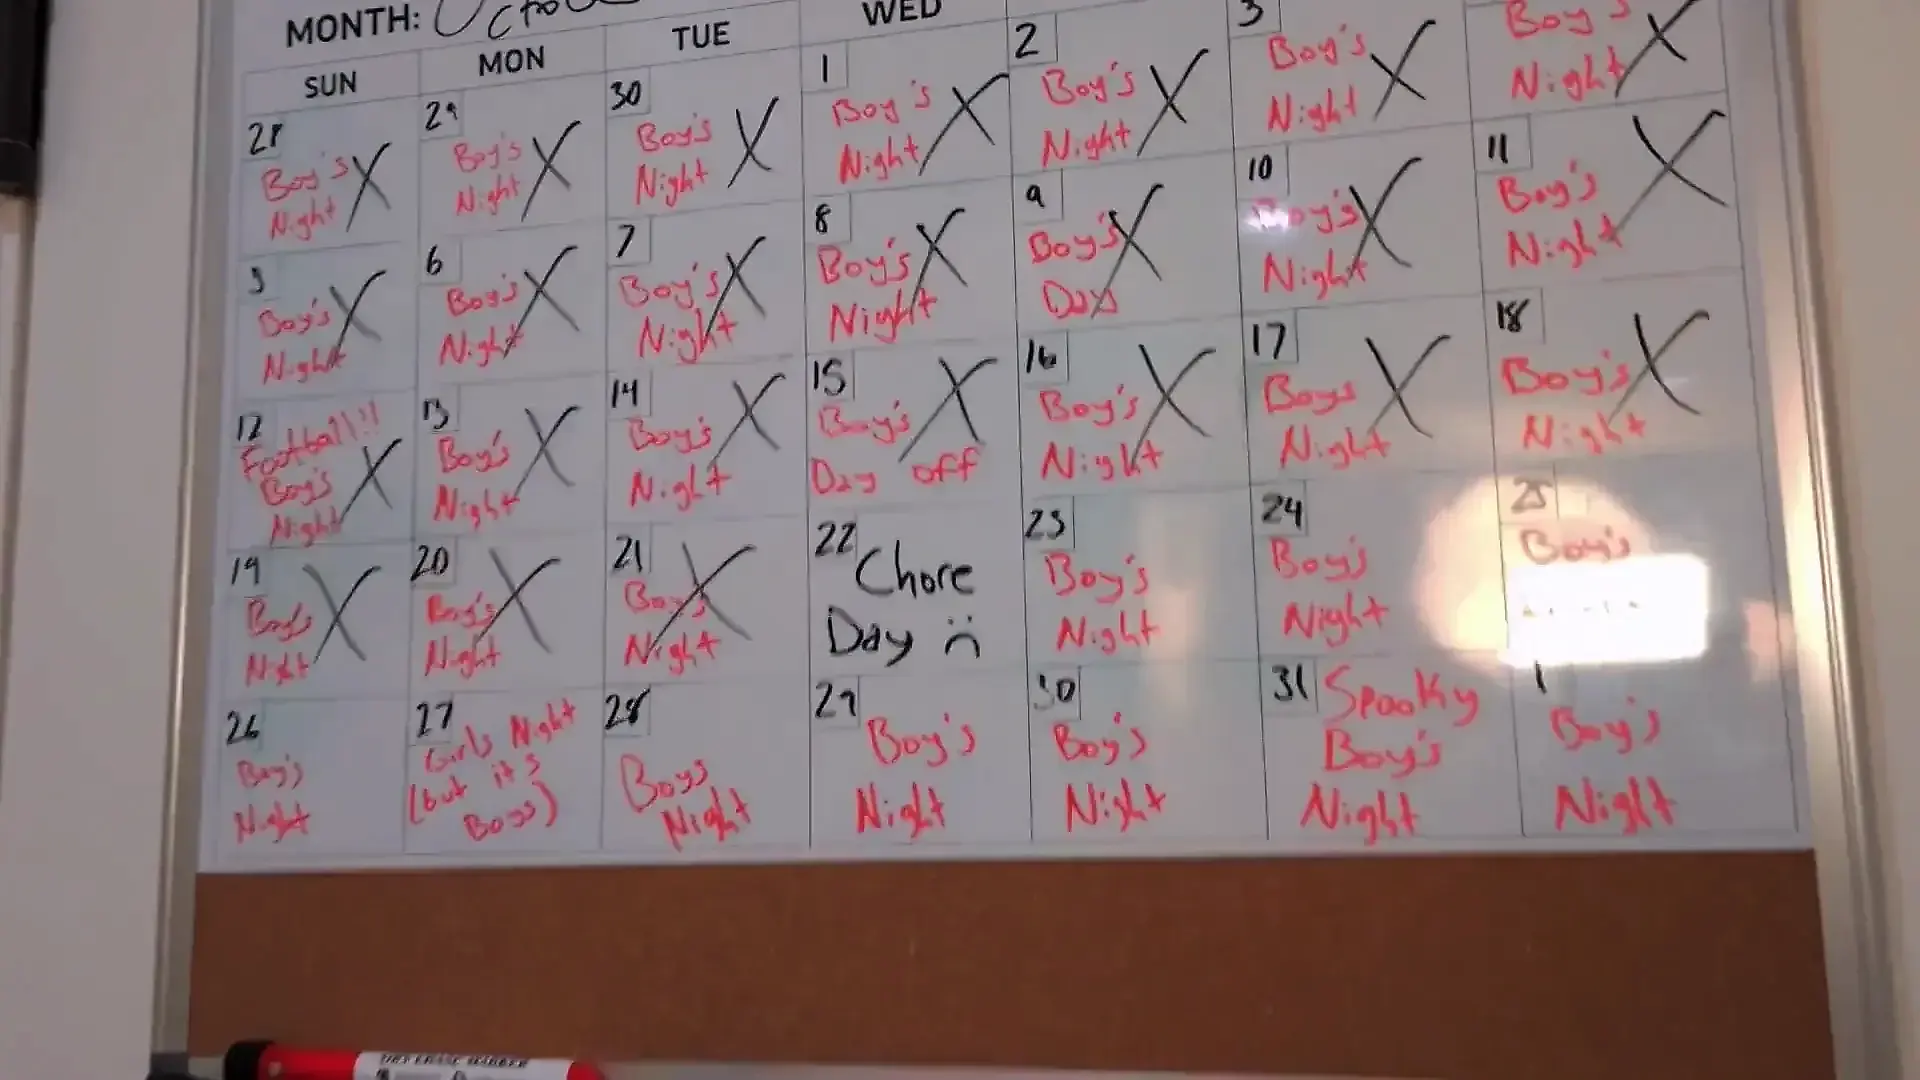 MONTH: Octob
SUN MON TUE WED
28 Boy's Night
29 Boy's Night
30 Boy's Night
1 Boy's Night
2 Boy's Night
3 Boy's Night
Boy's Night
5 Boy's Night
6 Boy's Night
7 Boy's Night
8 Boy's Night
9 Boy's Day
10 Boy's Night
11 Boy's Night
12 Football!! Boy's Night
13 Boy's Night
14 Boy's Night
15 Boy's Day off
16 Boy's Night
17 Boys Night
18 Boy's Night
19 Boy's Night
20 Boy's Night
21 Boy's Night
22 Chore Day :(
23 Boy's Night
24 Boy's Night
25 Boy's
26 Boy's Night
27 Girls Night (but it's Boys)
28 Boys Night
29 Boy's Night
30 Boy's Night
31 Spooky Boy's Night
1 Boy's Night